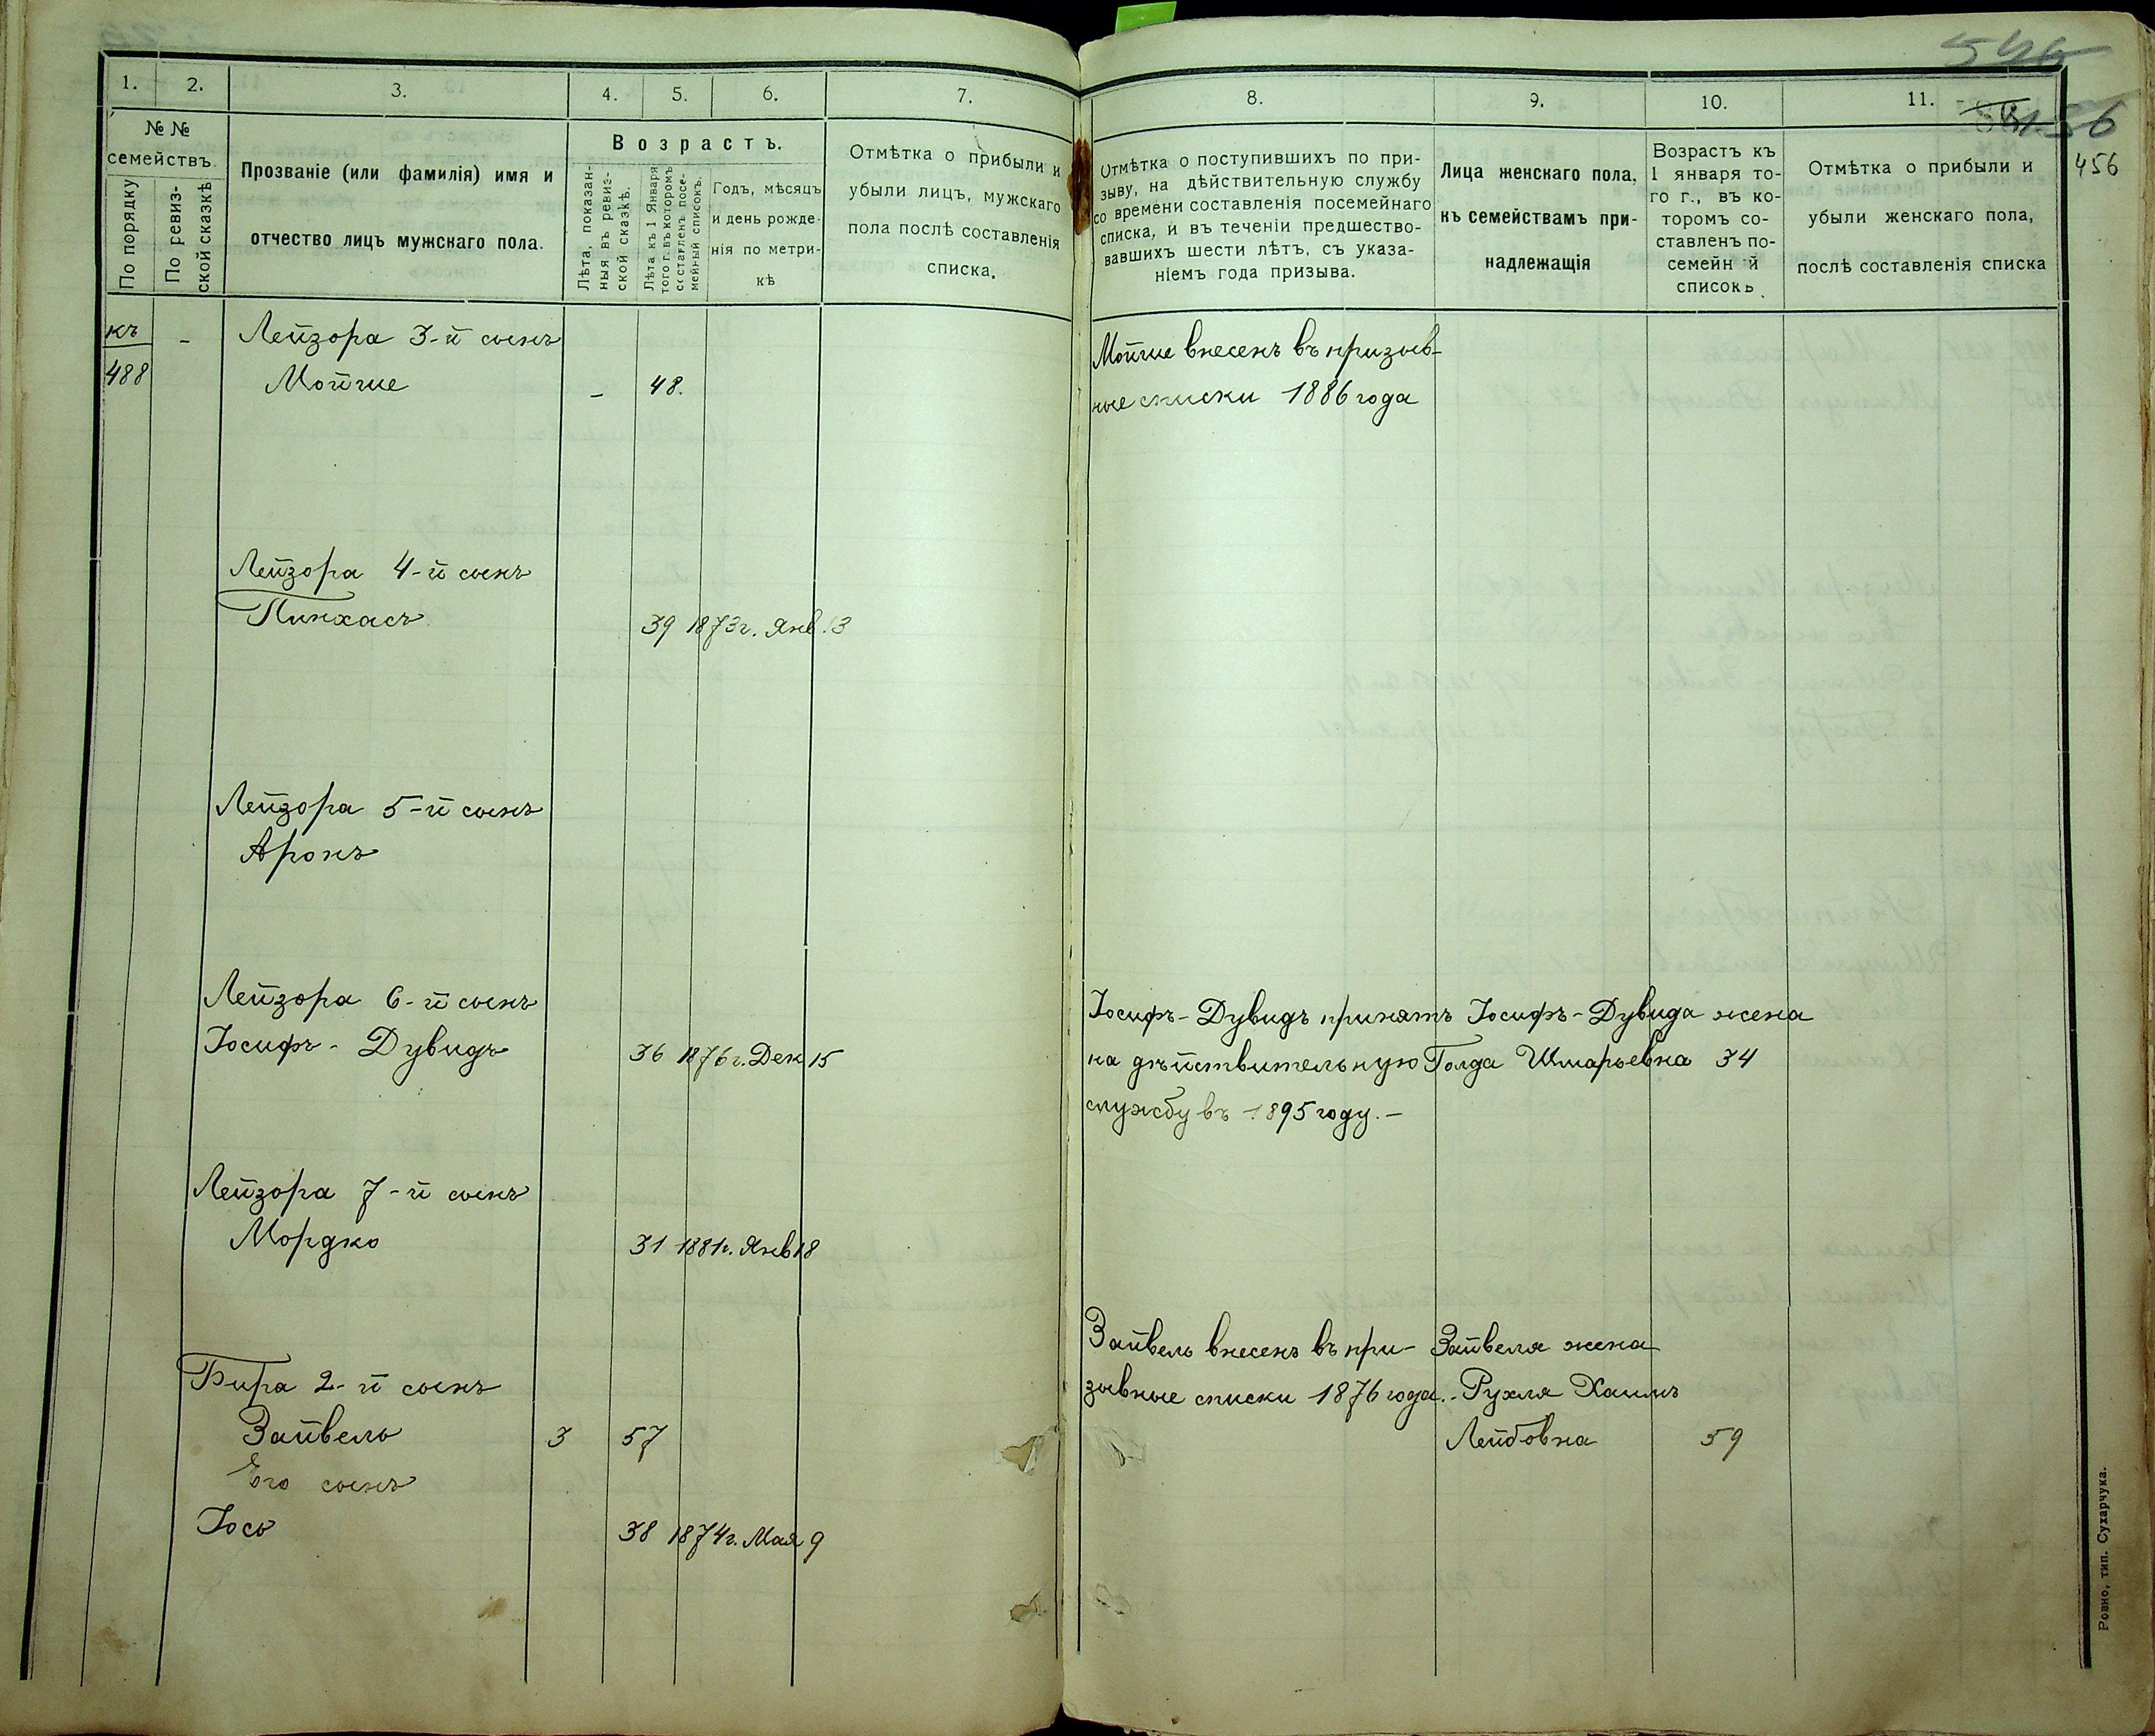 546
1. 2. 3. 4. 5. 6. 7. 8. 9. 10. 11.
456
456
№ №
семействъ.
По порядку
По ревиз-
ской сказкѣ
Прозваніе (или фамилія) имя и
отчество лицъ мужскаго пола.
Возрастъ.
Лѣта, показан-
ныя въ ревиз-
ской сказкѣ.
Лѣта къ 1 Января
того г. въ которомъ
составленъ посе-
мейный списокъ.
Годъ, мѣсяцъ
и день рожде-
нія по метри-
кѣ
Отмѣтка о прибыли и
убыли лицъ, мужскаго
пола послѣ составленія
списка.
Отмѣтка о поступившихъ по при-
зыву, на дѣйствительную службу
со времени составленія посемейнаго
списка, и въ теченіи предшество-
вавшихъ шести лѣтъ, съ указа-
ніемъ года призыва.
Лица женскаго пола,
къ семействамъ при-
надлежащія
Возрастъ къ
1 января то-
го г., въ ко-
торомъ со-
ставленъ по-
семейн й
списокъ
Отмѣтка о прибыли и
убыли женскаго пола,
послѣ составленія списка
къ - Лейзора 3-й сынъ
488 Мойше - 48.
Мойше внесенъ въ призыв-
ные списки 1886 года
Лейзора 4-й сынъ
Пинхасъ 39 1873г. Янв. 3
Лейзора 5-й сынъ
Аронъ
Лейзора 6-й сынъ
Іосифъ-Дувидъ 36 1876г. Дек 15
Іосифъ-Дувидъ принятъ
на дѣйствительную
службу въ 1895 году.-
Іосифъ-Дувида жена
Голда Шмарьевна 34
Лейзора 7-й сынъ
Мордко 31 1881г. Янв 18
Бира 2-й сынъ
Зайвель 3 57
Его сынъ
Іось 38 1874г. Мая 9
Зайвель внесенъ въ при-
зывные списки 1876 года.
Зайвеля жена
Рухля Хаимъ
Лейбовна 59
Ровно, тип. Сухарчука.